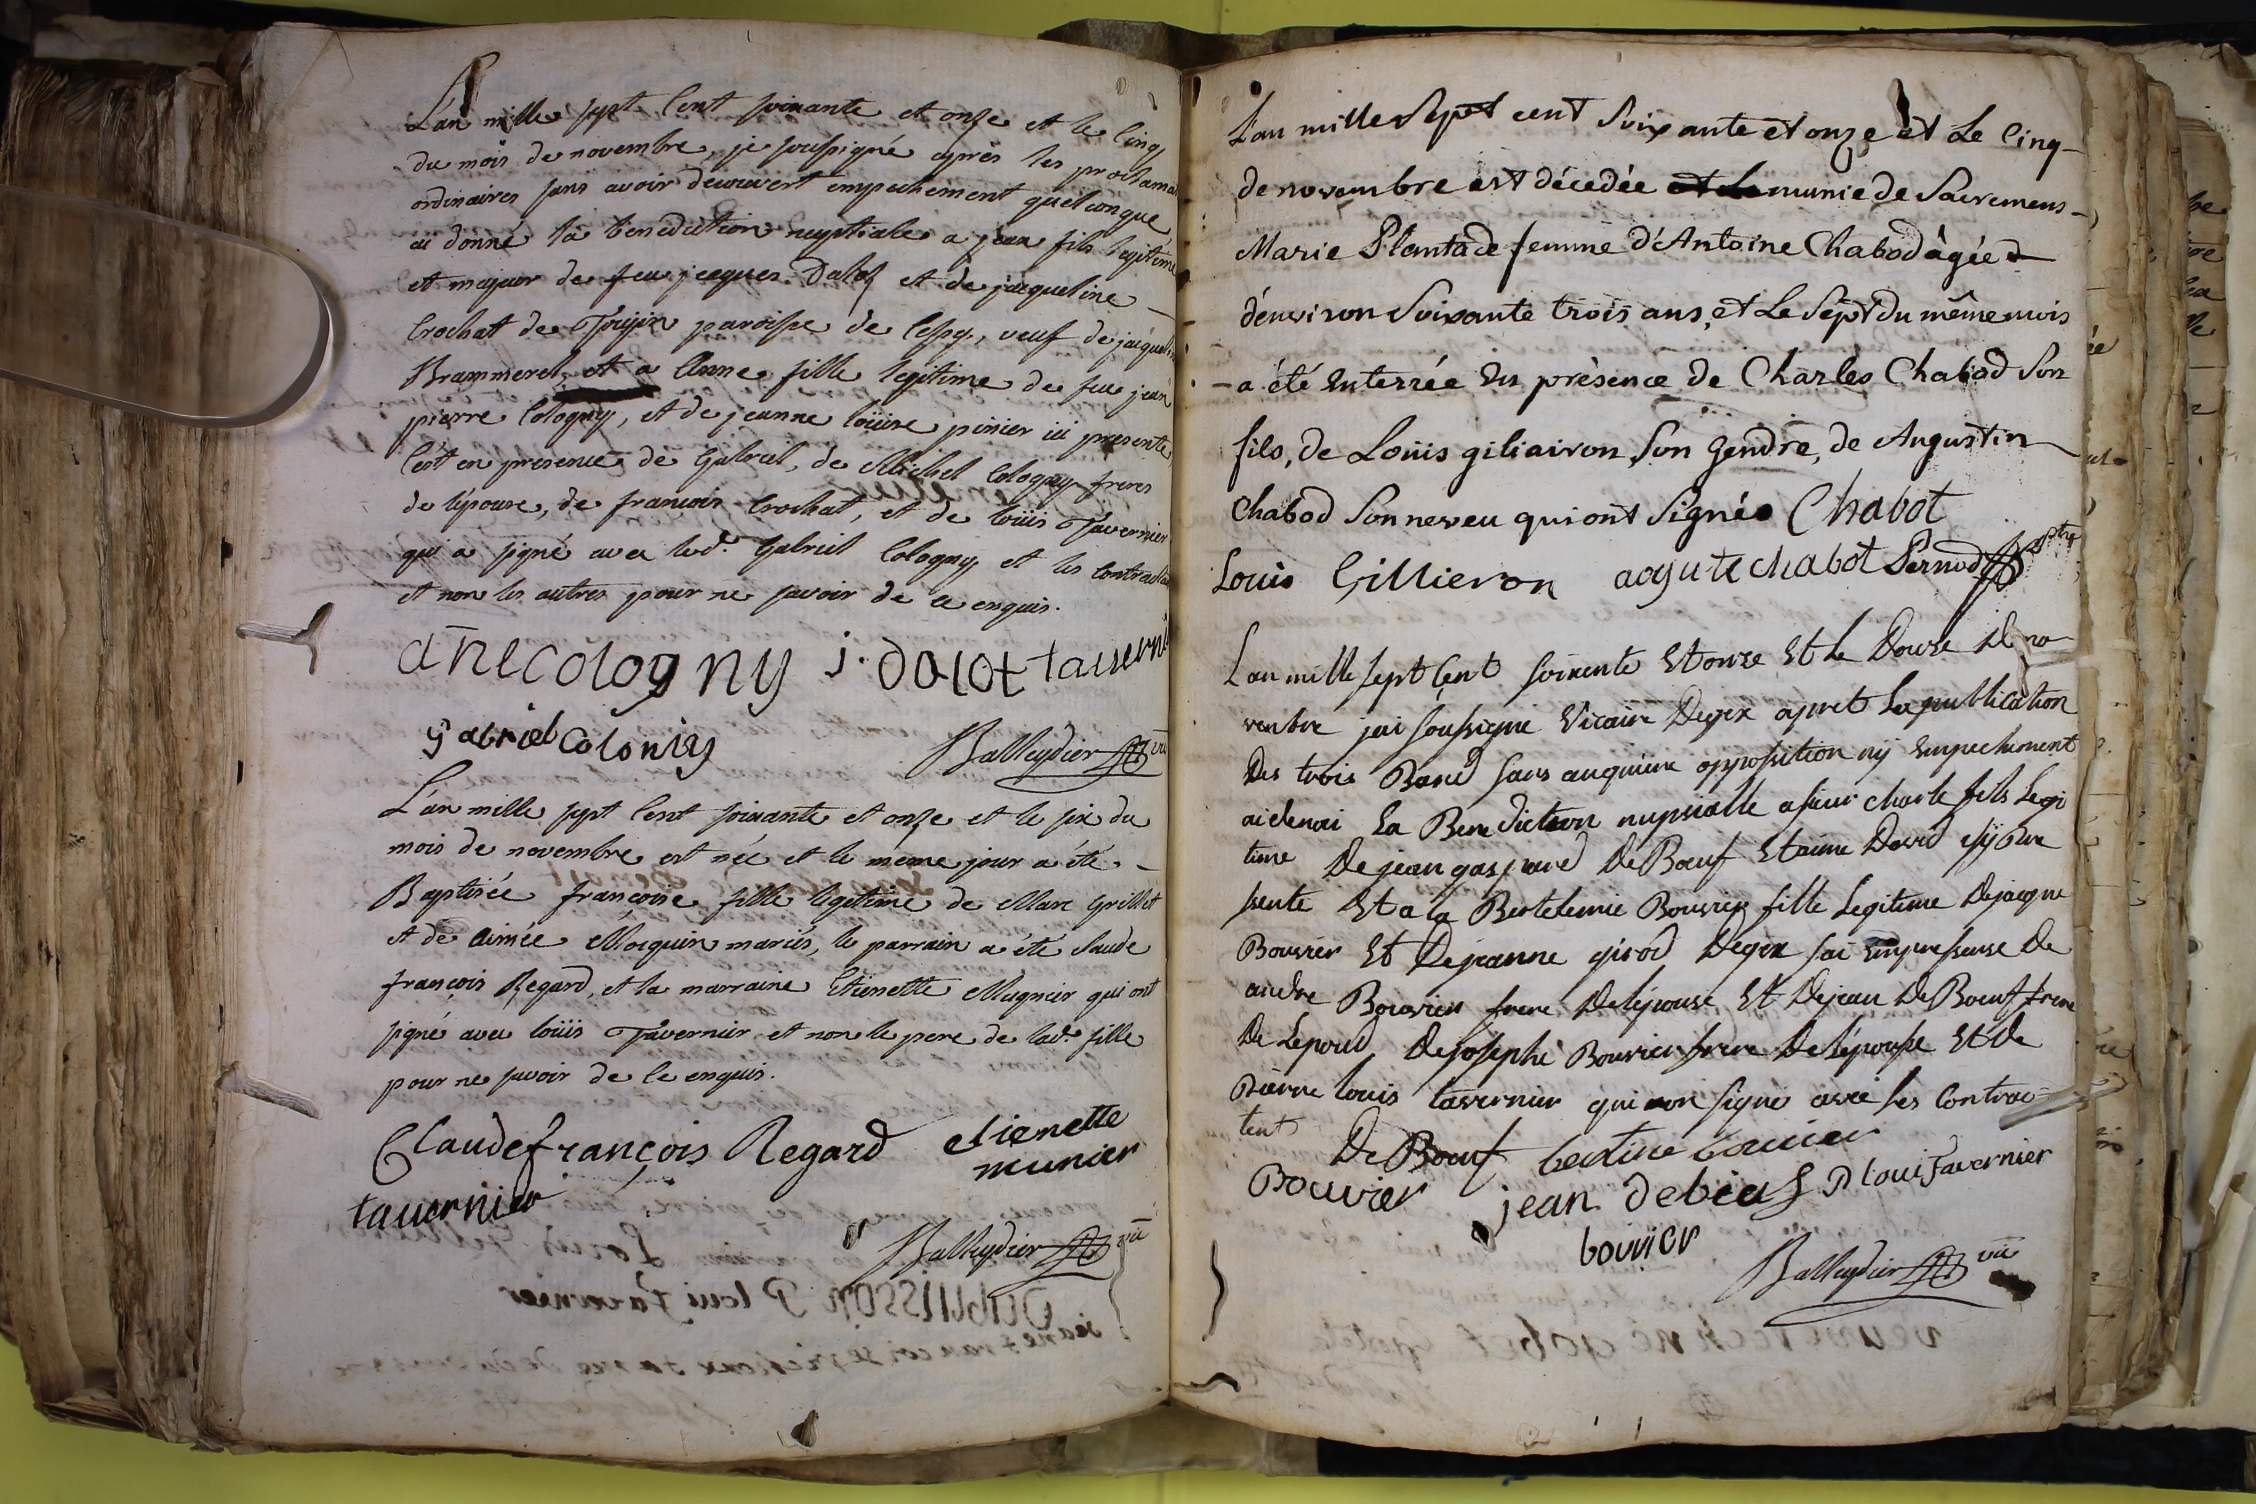 L'an mille sept Cent soixante et onze et le Cinq
du mois de novembre, je soussigné après les proclama
ordinaires sans avoir decouvert empechement quelconque
ai donné la benediction nuptiale a jean fils legitime
et majeur de feu jacques Dalot et de jacqueline
Crochat de paroisse de Cessy, veuf de jacqueli
Brammerel, et a Anne fille legitime de feu jean
pierre Cologny, et de jeanne loüise pinier ici presente,
C'est en presence de Gabriel, de Michel Cologny freres
de l'épouse, de francois Crochat, et de loüis Tavernier
qui a signé avec led. Gabriel Cologny et les Contracta
et non les autres pour ne savoir de ce enquis.
añe cology ny j. dalot tauerni
gabriel Colonies
Balleydier vic
L'an mille sept Cent soixante et onze et le six du
mois de novembre est née et le même jour a été
Baptisée françoise fille legitime de Marc Grillet
et de Aimée Mocquin mariés, le parrain a été Claude
françois Regard, et la marraine Etienette Magnier qui ont
signé avec loüis Tavernier et non le pere de lad. fille
pour ne savoir de ce enquis.
Claude françois Regard etienette
munier
tauernier
Balleydier vic
L'an mille Sept cent Soixante et onze et Le Cinq
de novembre est décedée munie de Sacremens
Marie Plantade femme d'Antoine Chabod âgée
d'environ Soixante trois ans, et Le Sept du même mois
a été Enterrée En présence de Charles Chabod Son
fils, de Loüis giliairon Son Gendre, de Augustin
Chabod Son neveu qui ont Signés Chabot
Louis Gillieron aogute chabot Pernod ptre
L'an mille sept Cent soixente Et onze Et Le Douze De no
venbre jai soussigne Vicaire Degex apret La publication
Des trois Band sans auquune opposition nij Empechement
ai denai La Benediction nupsialle a sieur charle fils Legi
time De jean gaspard De Boeuf Et aime David isy pre
sente Et a la Bertelemie Bouvier fille Legitime De jacque
Bouvier Et De jeanne girod Degex fai Enpresense De
andre Bouvier frere De lépouse Et De jean De Boeuf frere
De Lepoud De josephe Bouvier frere De lépouse Et De
Pierre louis tavernier qui on signe avec les Contrac
tent
De Boeuf bertine bouvier
Bouvier jean debeuf P loui Tavernier
bouvier
Balleydier vic